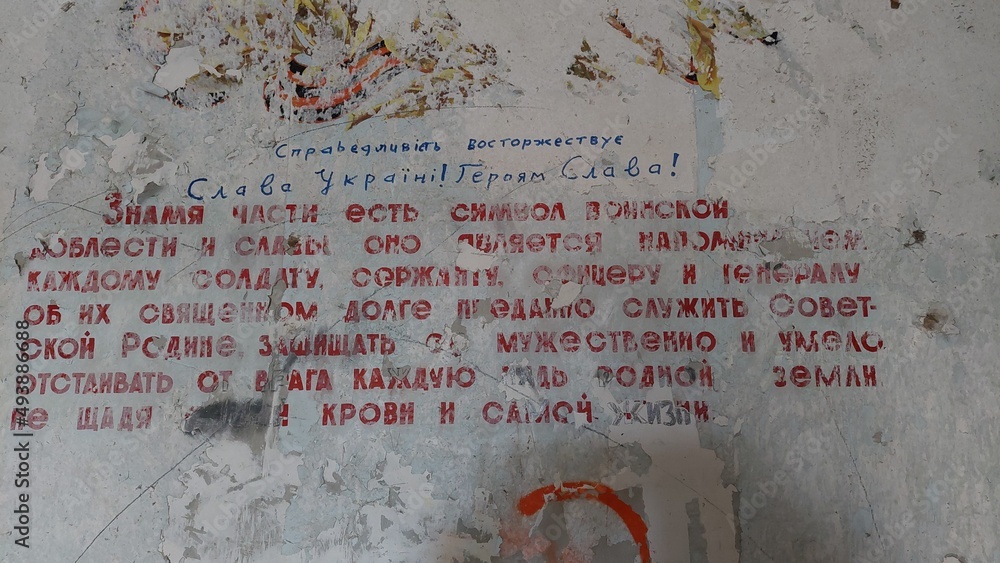 Справедливість восторжествує
Слава Україні! Героям Слава!
Знамя части есть символ воинской
доблести и славы оно является напоминанием
каждому солдату, сержанту, офицеру и генералу
об их священном долге преданно служить Совет-
ской Родине, защищать ее мужественно и умело
отстаивать от врага каждую пядь родной земли
не щадя крови и самой жизни
Adobe Stock | #493886688